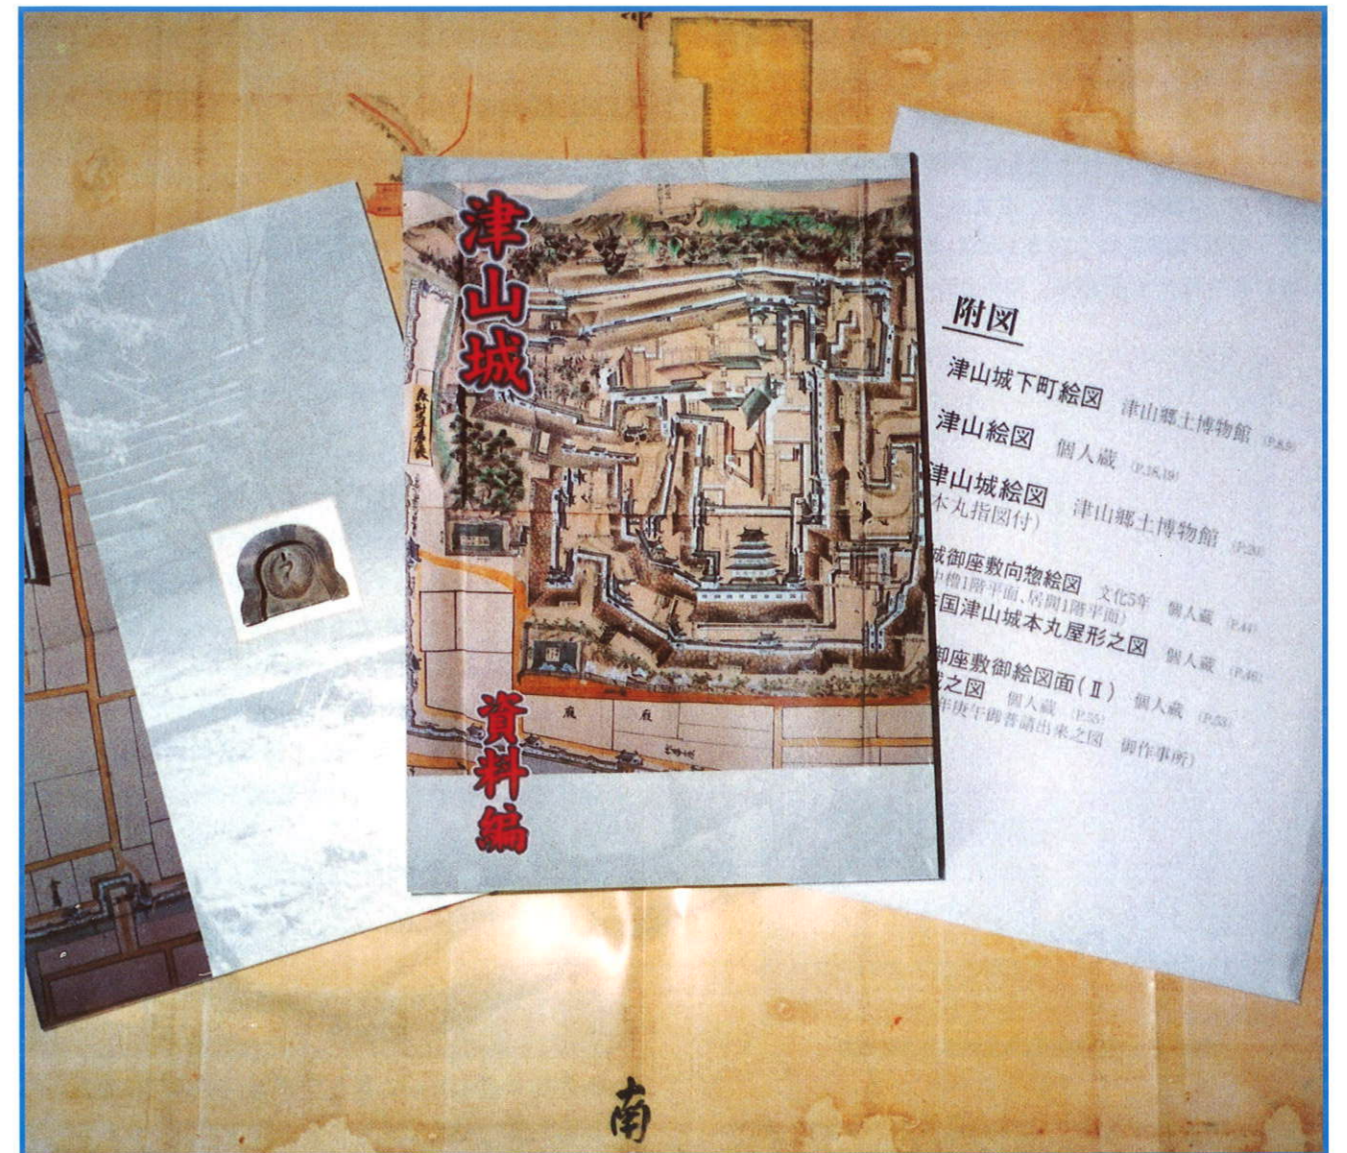 津山城
資料編
廐
廐
附図
津山城下町絵図 津山郷土博物館 (P.8,9)
津山絵図 個人蔵 (P.18,19)
津山城絵図 津山郷土博物館 (P.20)
本丸指図付)
城御座敷向惣絵図 文化5年 個人蔵 (P.44)
中櫓1階平面、居間1階平面)
国津山城本丸屋形之図 個人蔵 (P.46)
御座敷御絵図面(Ⅱ) 個人蔵 (P.53)
之図 個人蔵 (P.55)
年庚午御普請出来之図 御作事所)
南